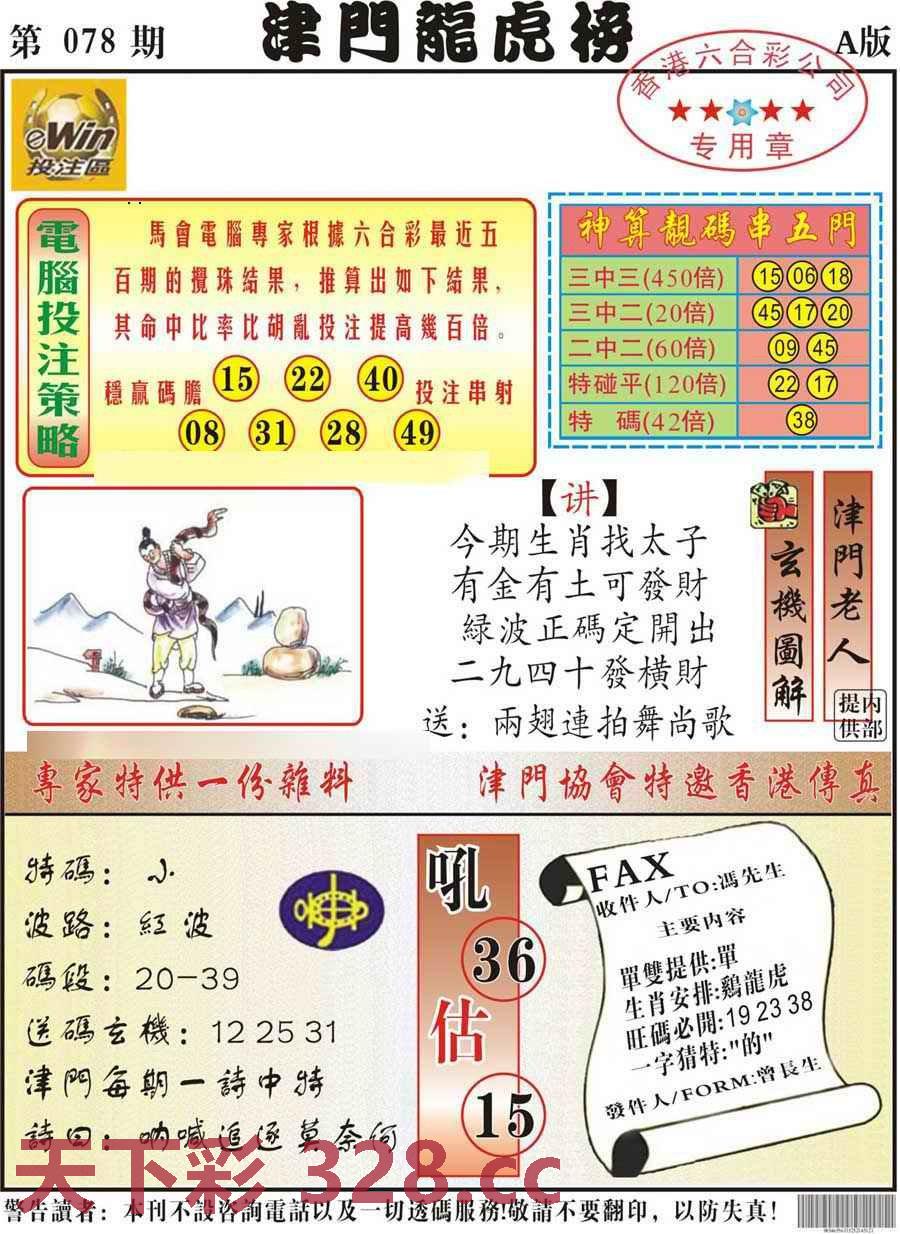 第 078 期
津門龍虎榜
A版
香港六合彩公司
专用章
eWin
投注區
電腦投注策略
馬會電腦專家根據六合彩最近五
百期的攪珠結果，推算出如下結果，
其命中比率比胡亂投注提高幾百倍。
穩贏碼膽 15 22 40 投注串射
08 31 28 49
神算靚碼串五門
三中三(450倍) 15 06 18
三中二(20倍) 45 17 20
二中二(60倍) 09 45
特碰平(120倍) 22 17
特 碼(42倍) 38
【讲】
今期生肖找太子
有金有土可發財
緑波正碼定開出
二九四十發橫財
送：兩翅連拍舞尚歌
玄機圖解
津門老人
内部提供
專家特供一份雜料
津門協會特邀香港傳真
特碼：小
波路：紅波
碼段：20-39
送碼玄機：12 25 31
津門每期一詩中特
詩曰：吶喊追逐莫奈何
吼
36
估
15
FAX
收件人/TO:馮先生
主要内容
單雙提供:單
生肖安排:鷄龍虎
旺碼必開:19 23 38
一字猜特:"的"
發件人/FORM:曾長生
天下彩 328.cc
警告讀者：本刊不設咨詢電話以及一切透碼服務!敬請不要翻印，以防失真！